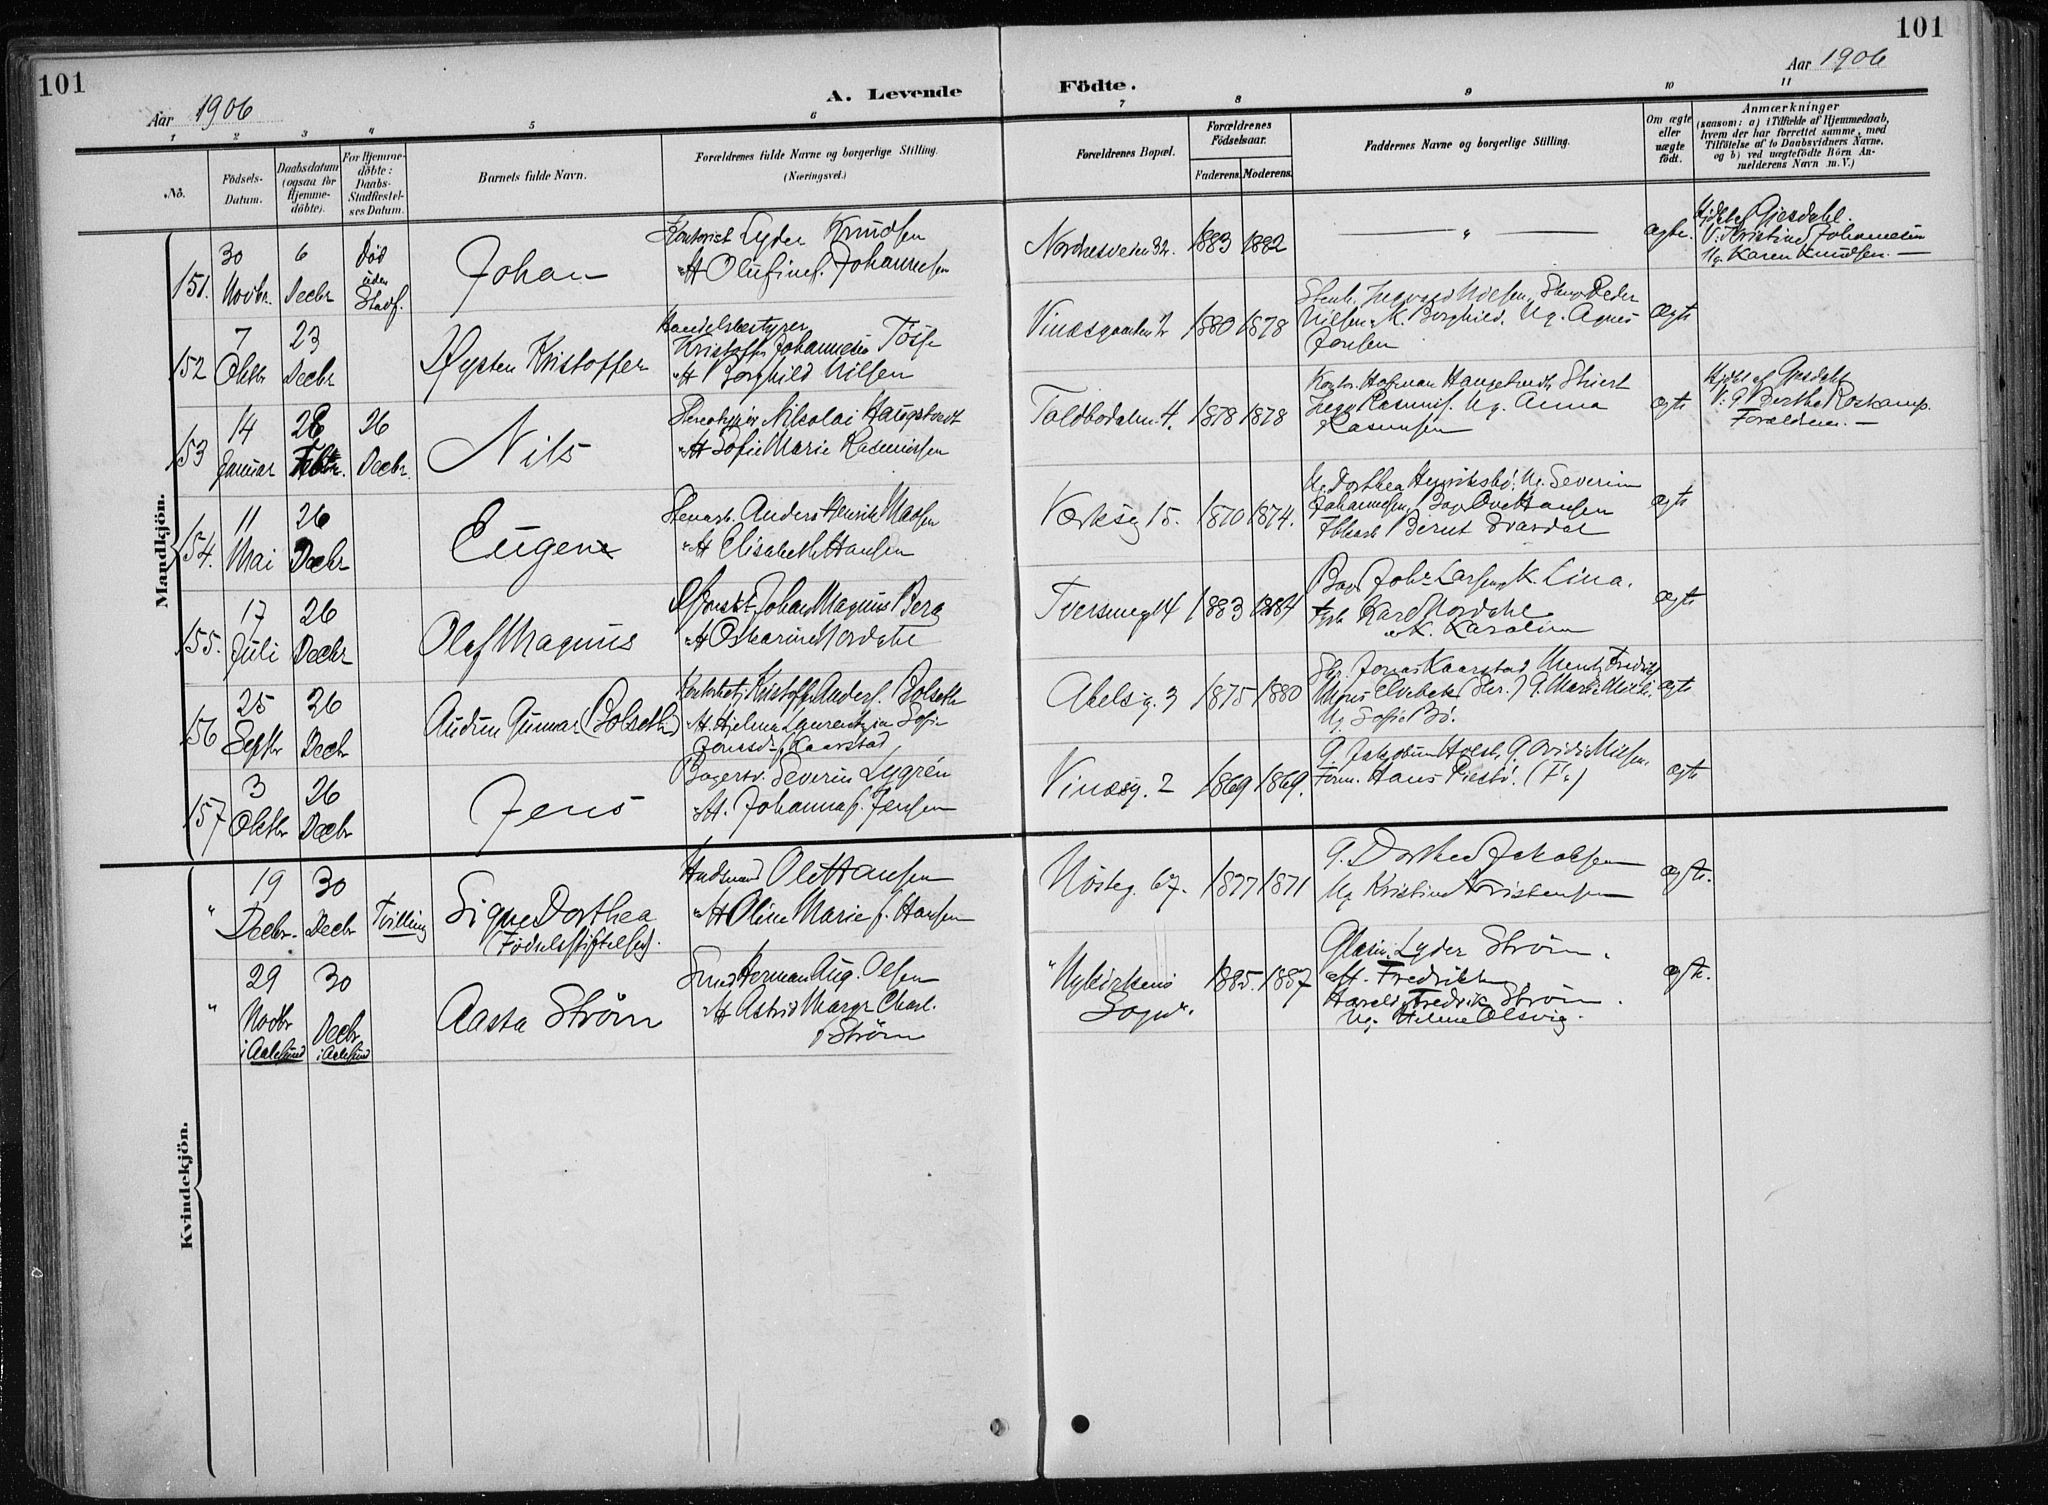 101
101
Aar 1906
A. Levende Födte.
Aar 1906
1 2 3 4 5 6 7 8 9 10 11
No.
Födsels-
Datum.
Daabsdatum
(ogsaa för
Hjemme-
döbte).
For Hjemme-
döbte:
Daabs-
Stadfæstel-
ses Datum.
Barnets fulde Navn.
Forældrenes fulde Navne og borgerlige Stilling.
(Næringsvei.)
Forældrenes Bopæl.
Forældrenes
Födselsaar.
Faderens. Moderens.
Faddernes Navne og borgerlige Stilling.
Om ægte
eller
uægte
födt.
Anmærkninger
(saasom: a) i Tilfælde af Hjemmedaab,
hvem der har forrettet samme, med
Tilföielse af to Daabsvidners Navne,
og b) ved uægtefödte Börn An-
melderens Navn m. V.)
Mandkjön.
151. 30 Novbr. 6 Decbr Död uden Stadf.
Johan
Kontorist Lyder Knudsen
"H Olufine f. Johannesen
Nordnesveien 32. 1883 1882
— " —
ægte.
Hjdbt af Gjesdahl.
V: Kristine Johannesen
Ug. Karen Knudsen. —
152 7 Oktbr 23 Decbr
Øysten Kristoffer
Handelsbestyrer
Kristoffer Johannesen Tösse
"H Borghild Nilsen
Vinæsgaarden 1880 1878
Stenh. Ingvard Nilsen, Peder
Nilsen K. Borghild, Ug. Agnes
Jansen
Ægte
153 14 Januar 28 Febr. 26 Decbr.
Nils
Stereotypör Nikolai Haugstvedt
"H Sofie Marie Rasmussen
Toldbodalm. 4. 1878 1878
Ug. Anna
Rasmussen
ægte
Hjdbt af Gjesdahl
V: G Berthe Roskamp.
Forældrene. —
154. 11 Mai 26 Decbr
Eugen
Stenarb. Anders Henrik Madsen
"H Elisabeth Hansen
Værksg 15. 1870 1874.
Ug Dorthea Henriksbö, Ug. Severin
Johannesen, Ove Hansen
Bernt Svardal
ægte
155. 17 Juli 26 Decbr
Olaf Magnus
Johan Magnus Berg
"H Oskarine Nordahl
Tversmug 14 1883 1884
Bag. Joh. Larsen, K. Lina.
Karl Nordahl
" K. Karolin
ægte
156 25 Septbr 26 Decbr
Audun Gunnar (Bolseth)
Kristoffer Anders. Bolseth
"H. Hjelma Laurentzia Sofie
Jonasdtr Kaarstad
Abelsg. 3 1875 1880
Jonas Kaarstad
Ug Sofie Bö.
ægte
157 3 Oktbr 26 Decbr
Jens
Bagersv. Severin Lygrén
"H. Johanna f. Jensen
Vinæsg. 2 1869 1869.
Form. Hans (F.)
ægte
Kvindekjön.
" 19 Decbr. 30 Decbr Tvilling
Signe Dorthea
(Födselsstiftelsen).
Ole Hansen
"H Oline Marie f. Hansen
Nösteg. 67. 1877 1871
G. Dorthea Jakobsen
Ug Kristine Kristensen
ægte.
" 29 Novbr i Aalesund 30 Decbr i Aalesund
Aasta Ström
Smed Herman Aug. Olsen
"H Astrid Margr Charl.
f Ström
"Nykirkens
Sogn". 1885. 1887
Lyder Ström.
Fredrikke
Harald Fredrik Ström.
Ug. Helene Olsvig.
ægte.